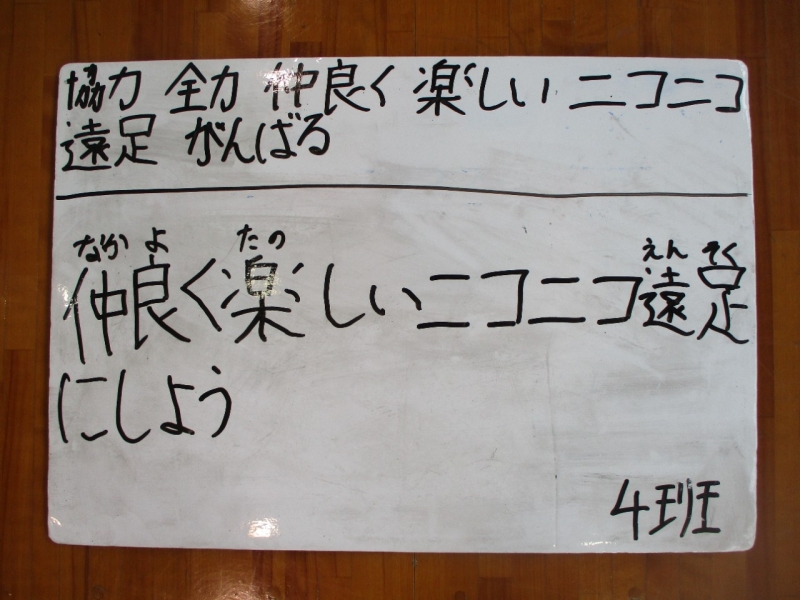 協力 全力 仲良く 楽しい ニコニコ
遠足 がんばる
なか よ たの えん そく
仲良く楽しいニコニコ遠足
にしよう
4班